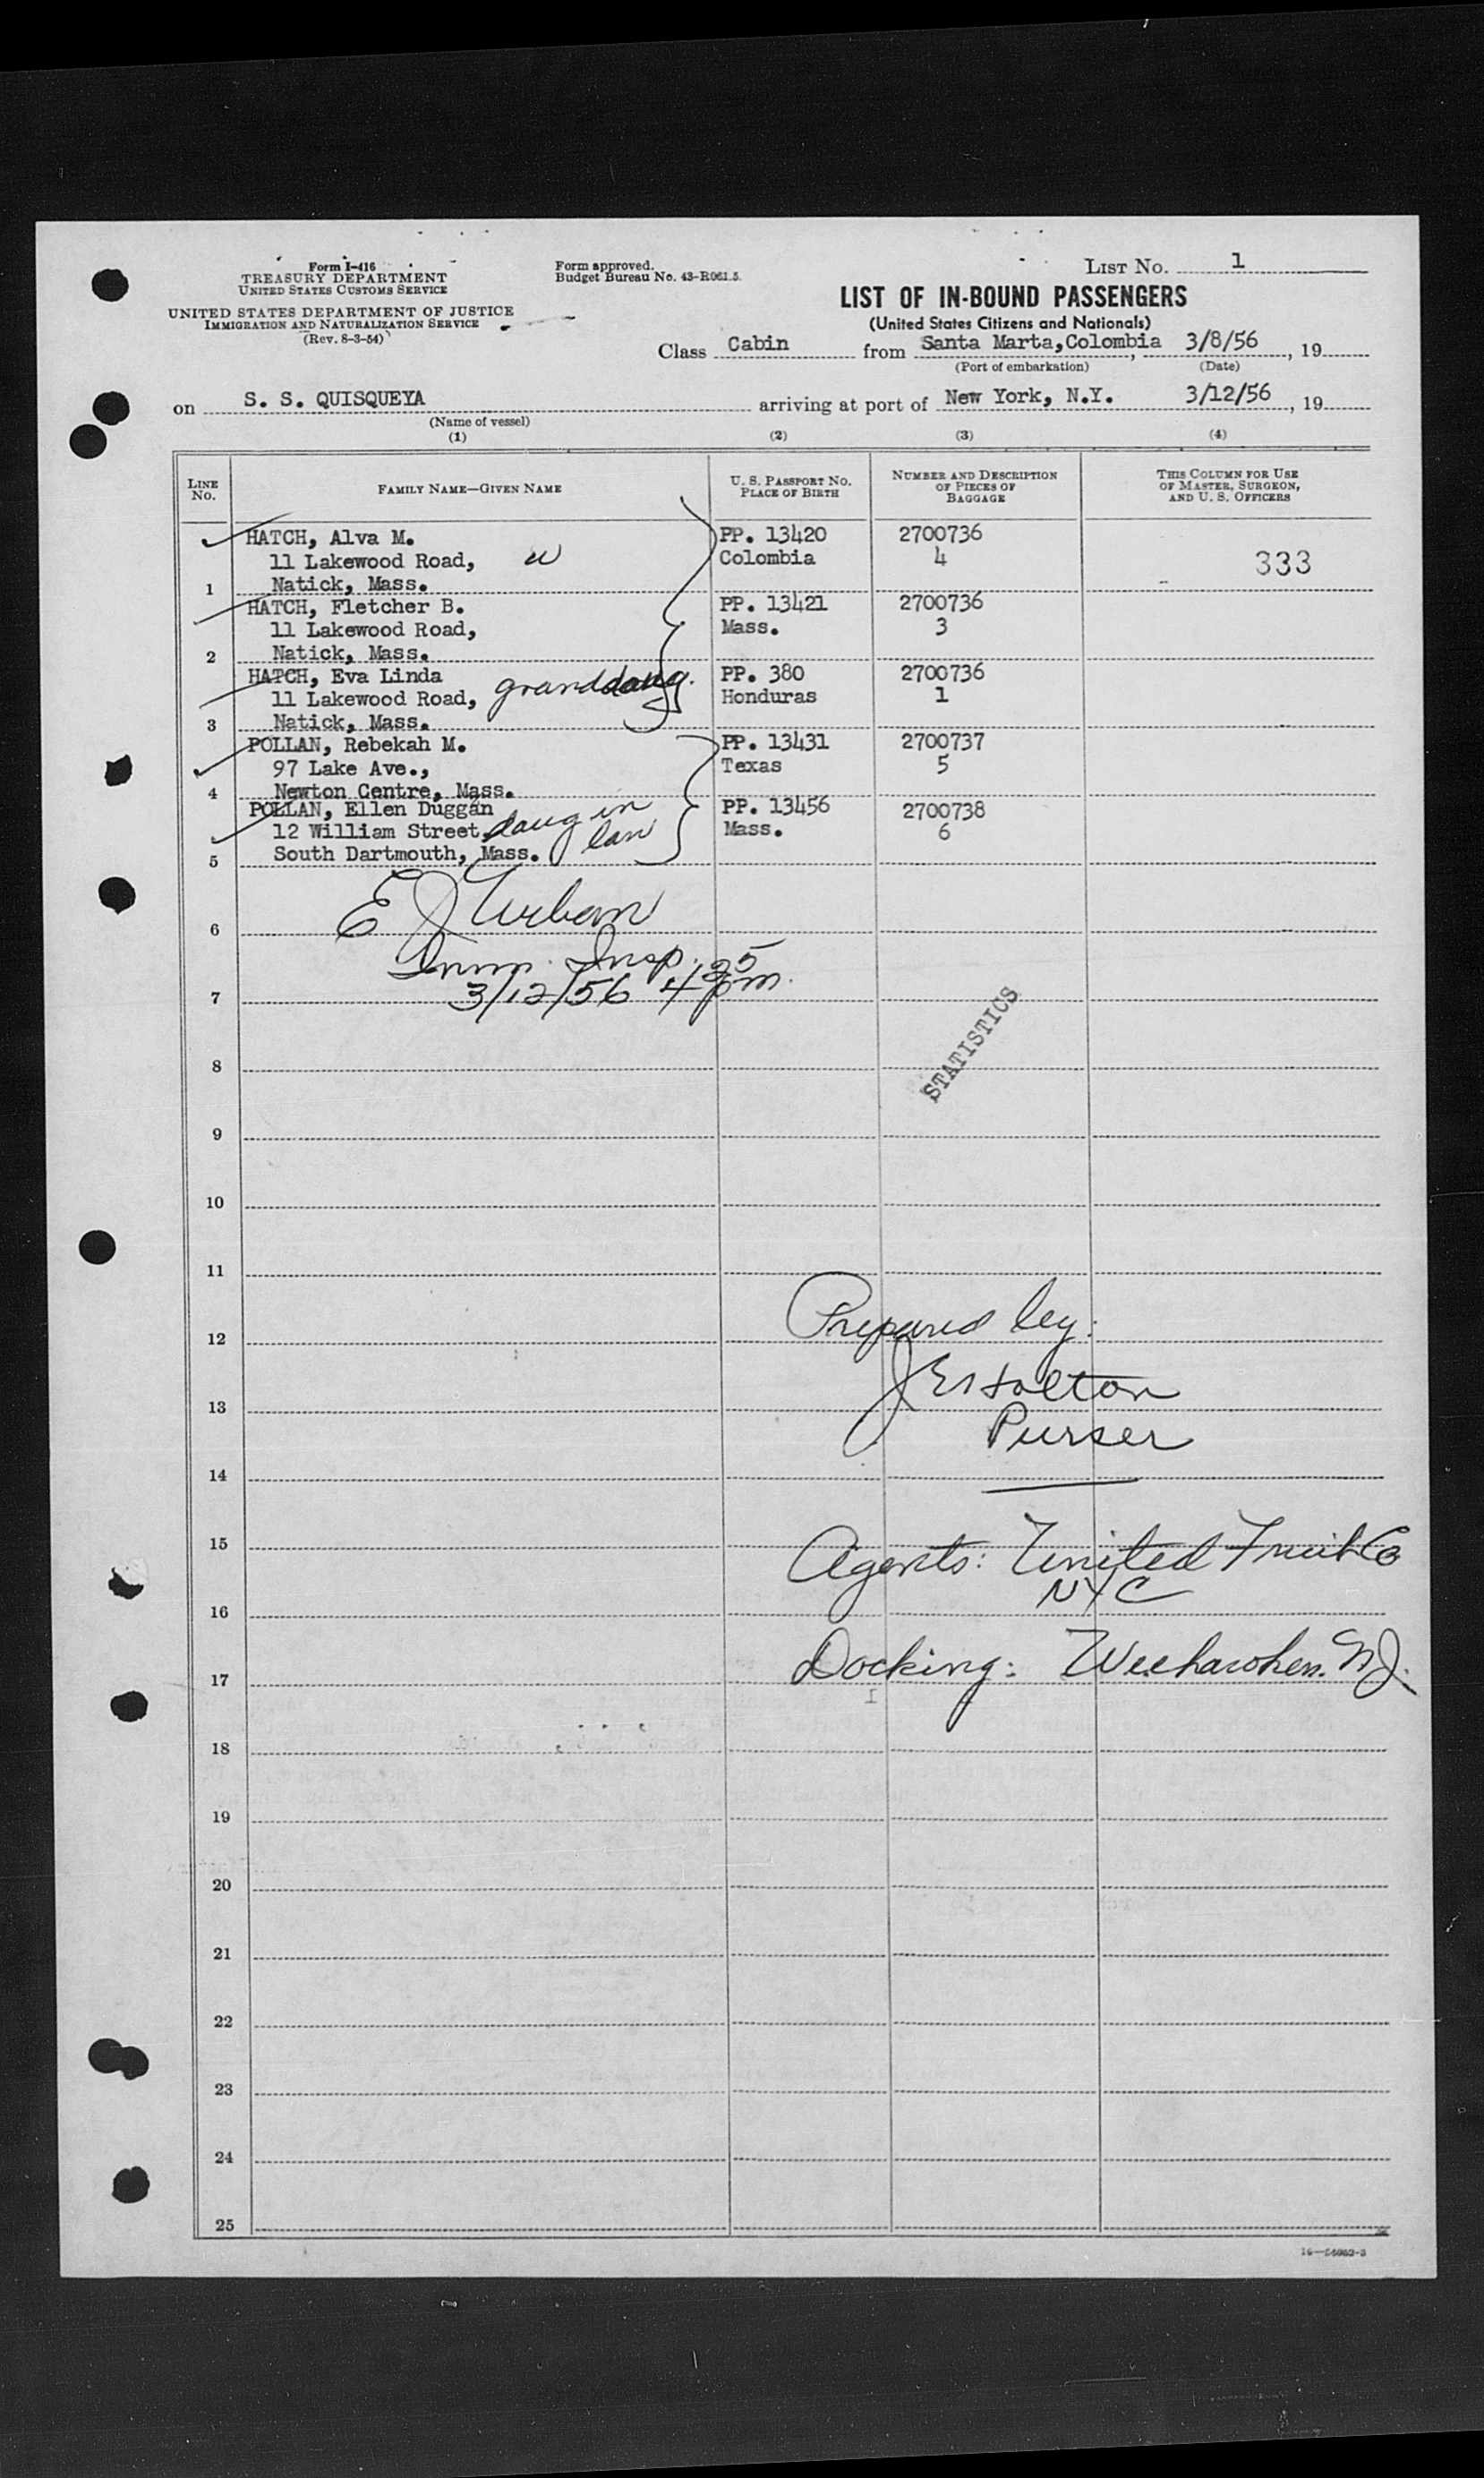 Form I-416
TREASURY DEPARTMENT
UNITED STATES CUSTOMS SERVICE
UNITED STATES DEPARTMENT OF JUSTICE
IMMIGRATION AND NATURALIZATION SERVICE
(Rev. 8-3-54)
Form approved.
Budget Bureau No. 43-R061.5.
LIST NO. 1
LIST OF IN-BOUND PASSENGERS
(United States Citizens and Nationals)
Class Cabin from Santa Marta, Colombia, 3/8/56, 19
(Port of embarkation) (Date)
on S. S. QUISQUEYA arriving at port of New York, N.Y. 3/12/56, 19
(Name of vessel)
(1) (2) (3) (4)
LINE NO.
FAMILY NAME—GIVEN NAME
U. S. PASSPORT NO.
PLACE OF BIRTH
NUMBER AND DESCRIPTION
OF PIECES OF
BAGGAGE
THIS COLUMN FOR USE
OF MASTER, SURGEON,
AND U. S. OFFICERS
HATCH, Alva M. PP. 13420 2700736
11 Lakewood Road, w Colombia 4 333
1 Natick, Mass.
HATCH, Fletcher B. PP. 13421 2700736
11 Lakewood Road, Mass. 3
2 Natick, Mass.
HATCH, Eva Linda PP. 380 2700736
11 Lakewood Road, granddaug. Honduras 1
3 Natick, Mass.
POLLAN, Rebekah M. PP. 13431 2700737
97 Lake Ave., Texas 5
4 Newton Centre, Mass.
POLLAN, Ellen Duggan PP. 13456 2700738
12 William Street, daug in law Mass. 6
5 South Dartmouth, Mass.
E J Urban
6
Imm. Insp.
7 3/12/56 4 35 pm.
STATISTICS
8
9
10
11
Prepared by:
12
J E Holton
13
Purser
14
15
Agents: United Fruit Co
NYC
16
Docking: Weehawken. NJ.
17
18
19
20
21
22
23
24
25